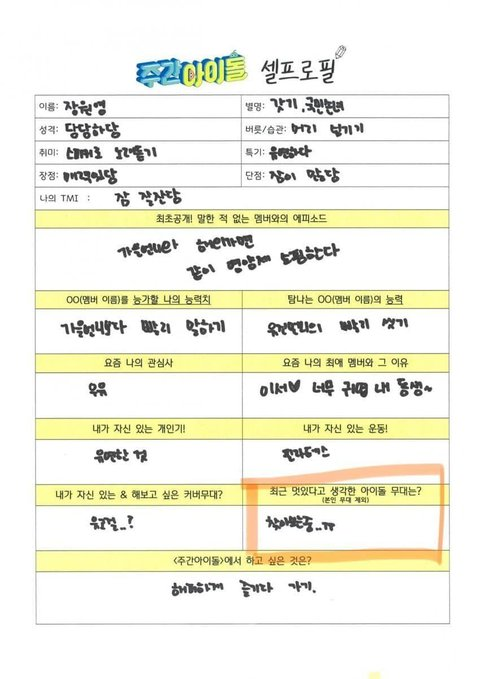 주간아이돌 셀프로필
이름: 장원영
별명: 갓기, 국민손녀
성격: 당당하당
버릇/습관: 머리 넘기기
취미: 스피커로 노래듣기
특기: 유연하다
장점: 매력있당
단점: 잠이 많당
나의 TMI : 잠 잘잔당
최초공개! 말한 적 없는 멤버와의 에피소드
가을언니랑
같이 영양제 쇼핑한다
OO(멤버 이름)를 능가할 나의 능력치
탐나는 OO(멤버 이름)의 능력
가을언니보다 빨리 말하기
유진언니의 빨리 씻기
요즘 나의 관심사
요즘 나의 최애 멤버와 그 이유
우유
이서♥ 너무 귀여운 내 동생~
내가 자신 있는 개인기!
내가 자신 있는 운동!
유연한 것
필라테스
내가 자신 있는 & 해보고 싶은 커버무대?
최근 멋있다고 생각한 아이돌 무대는?
(본인 무대 제외)
..?
찾아보는중..ㅠㅠ
<주간아이돌>에서 하고 싶은 것은?
해피하게 즐기다 가기.